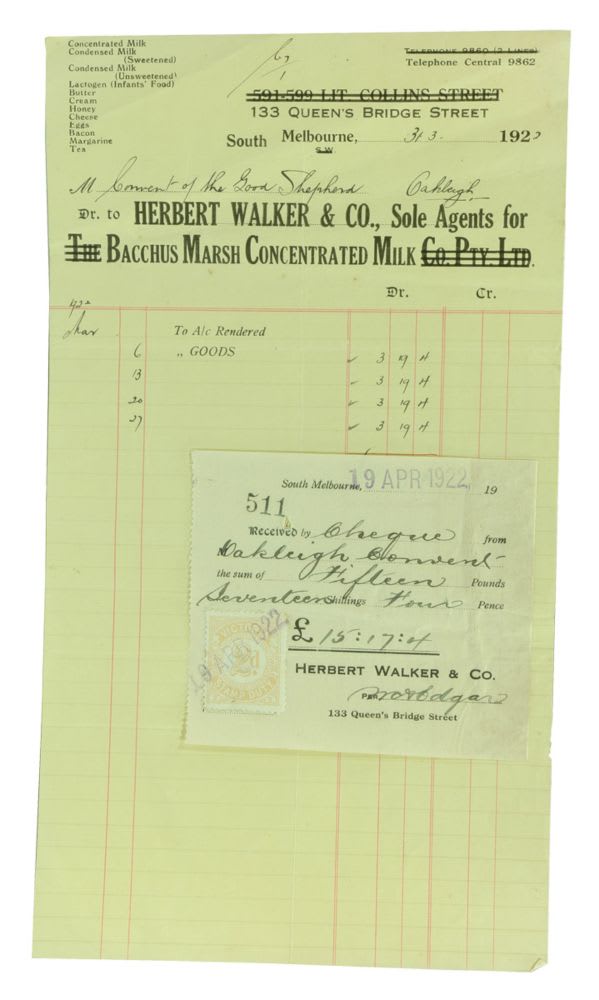 Concentrated Milk
Condensed Milk
(Sweetened)
Condensed Milk
(Unsweetened)
Lactogen (Infants' Food)
Butter
Cream
Honey
Cheese
Eggs
Bacon
Margarine
Tea
TELEPHONE 9860 (2 LINES)
Telephone Central 9862
591-599 LIT. COLLINS STREET
133 QUEEN'S BRIDGE STREET
South Melbourne, 31.3. 1922
S.W.
M Convent of the Good Shepherd Oakleigh
Dr. to HERBERT WALKER & CO., Sole Agents for
THE BACCHUS MARSH CONCENTRATED MILK CO. PTY. LTD.
Dr. Cr.
Mar To A/c Rendered
6 „ GOODS 3 19 4
13 3 19 4
20 3 19 4
27 3 19 4
South Melbourne, 19 APR 1922 19
511
Received by Cheque from
Oakleigh Convent
the sum of Fifteen Pounds
Seventeen Shillings Four Pence
£ 15:17:4
19 APR 1922
2d
STAMP DUTY
HERBERT WALKER & CO.
PER
133 Queen's Bridge Street